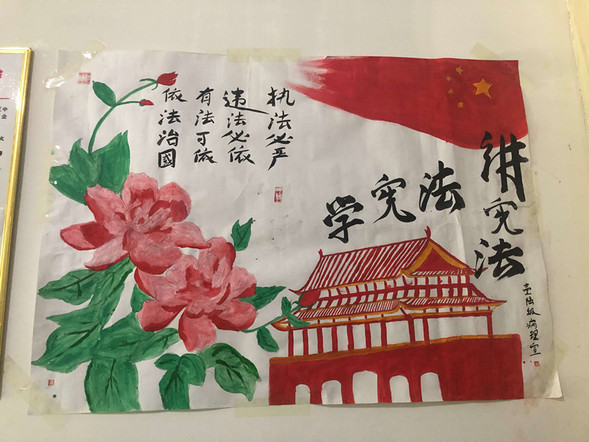 执法必严
违法必依
有法可依
依法治國
学宪法
讲宪法
级病理室